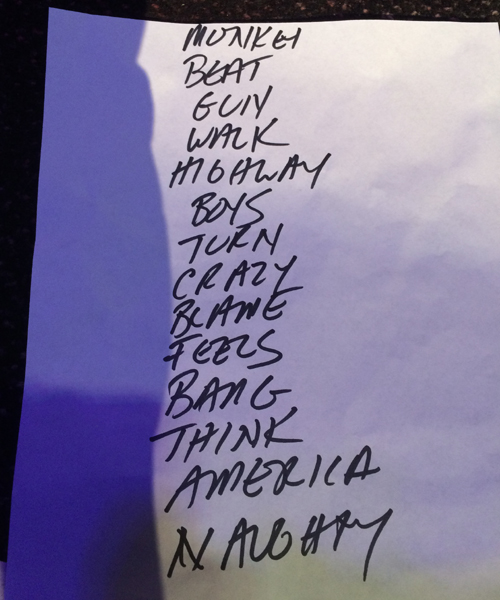 MONKEY
BEAT
GUIY
WALK
HIGHWAY
BOYS
TURN
CRAZY
BLAME
FEELS
BANG
THINK
AMERICA
NAUGHTY